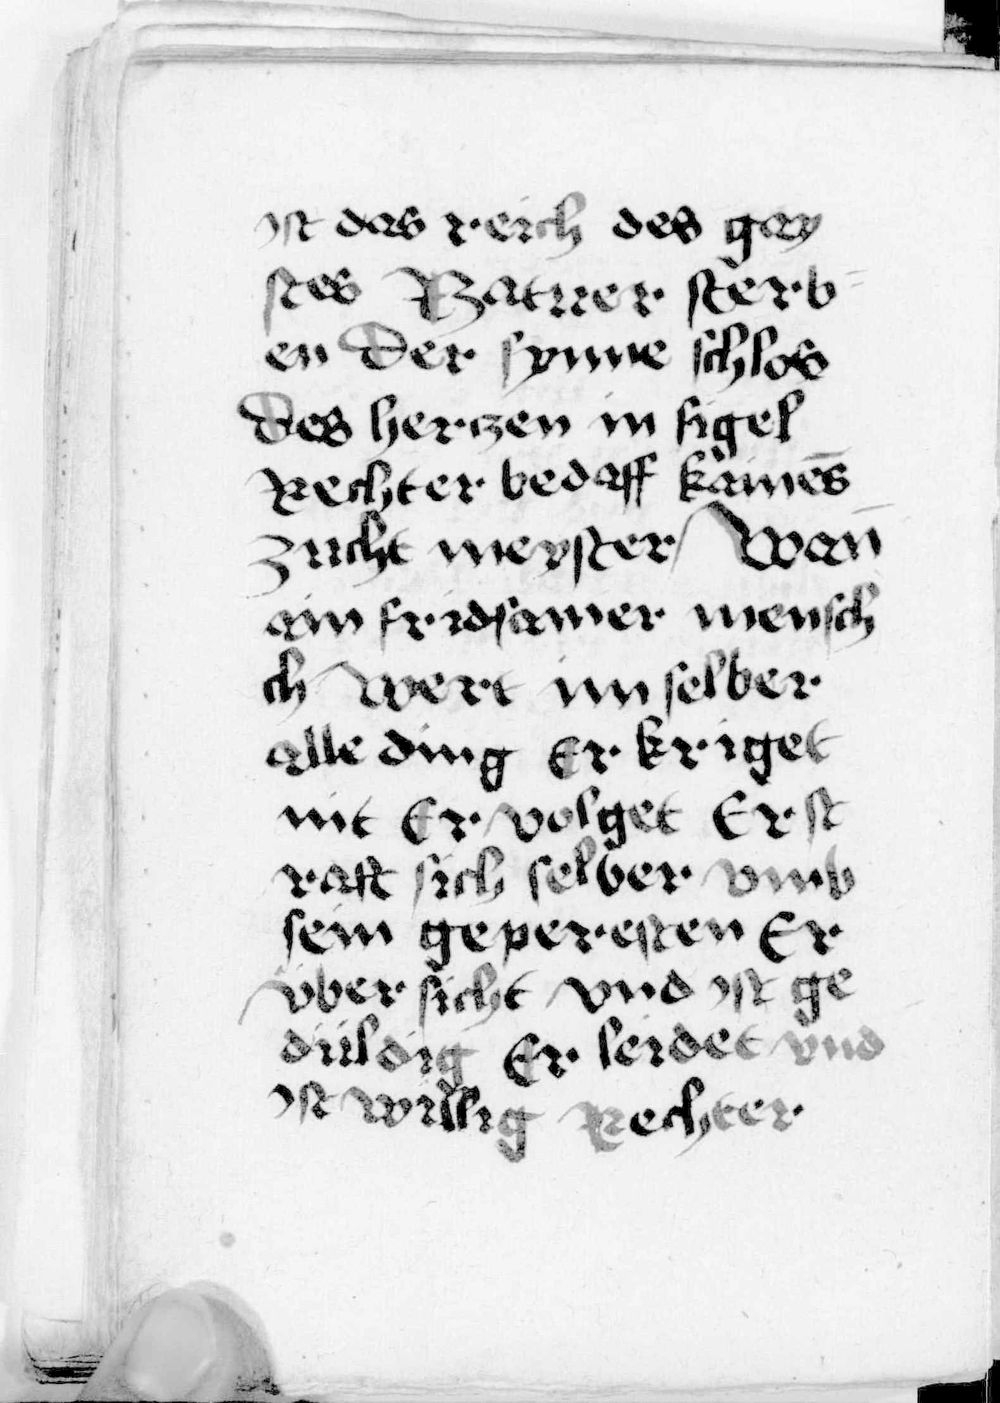 ist das reich des gay
stes Natuer sterb=
en der synne schlos
des herczen in sigel
Rechter bedaff kaines̄
zucht meyster / Wan̄
ain fridsamer mensch
ch wert im selber
alle ding Er kriget
nit Er volget Er st
raft sich selber vmb
sein gepresten Er
vber sicht vnd ist ge
düldig Er leidet vnd
ist willig Rechter